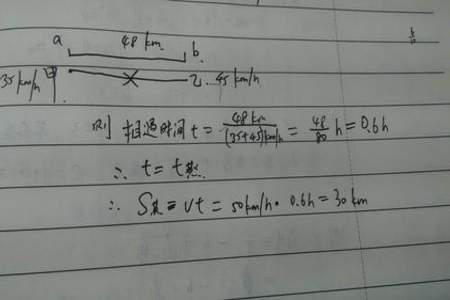 a 48 km b
35 km/h 甲 乙 45 km/h
则 相遇时间 t = 48 km / (35+45) km/h = 48/80 h = 0.6h
∴ t = t
∴ S = vt = 50 km/h · 0.6h = 30 km